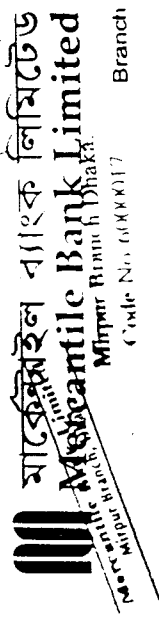 মার্কেন্টাইল ব্যাংক লিমিটেড
Mercantile Bank Limited
Mirpur Branch Dhaka.
Branch
Mercantile
Mirpur Branch,